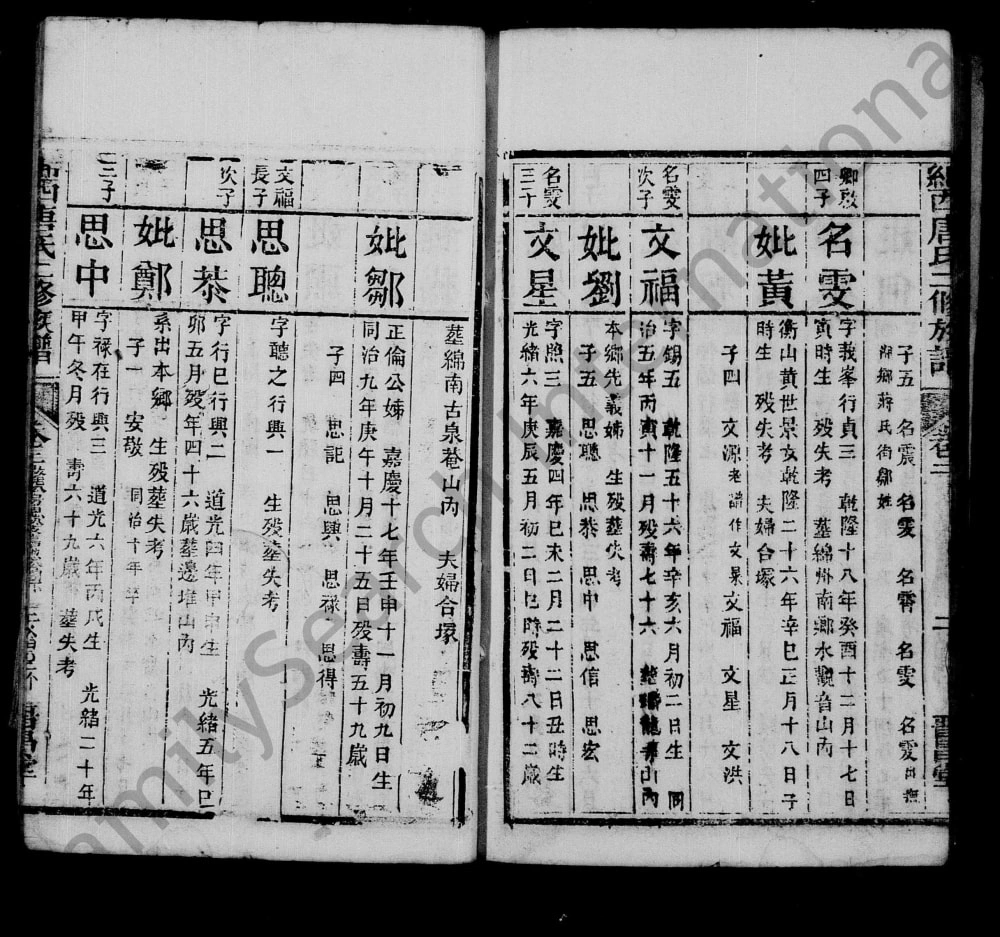 子五 名震 名雯 名霄 名雯 名雯出撫
湖鄉蔣氏街鄒姓
卿啟
四子
名雯
字莪峯行貞三 乾隆十八年癸酉十二月十七日
寅時生 歿失考 塟綿州南鄉水觀音山內
妣黃
衡山黄世景女乾隆二十六年辛巳正月十八日子
時生 歿失考 夫婦合塚
子四 文源老譜作文杲文福 文星 文洪
名雯
次子
文福
字錫五 乾隆五十六年辛亥六月初二日生 同
治五年丙寅十一月歿壽七十六
妣劉
本鄉先義姊 生歿塟失考
子五 思聰 思恭 思中 思信 思宏
名雯
三子
文星
字照三 嘉慶四年己未二月二十二日丑時生
光緒六年庚辰五月初二日巳時歿壽八十二歲
塟綿南古泉菴山內 夫婦合塚
妣鄒
正倫公姊 嘉慶十七年壬申十一月初九日生
同治九年庚午十月二十五日歿壽五十九歲
子四 思記 思輿 思祿 思得
文福
長子
思聰
字聽之行興一 生歿塟失考
次子
思恭
字行巳行興二 道光四年甲申生 光緒五年己
卯五月歿年四十六歲塟邊堆山內
妣鄭
系出本鄉 生歿塟失考
子一 安敬 同治十年卒
三子
思中
字祿在行興三 道光六年丙戌生 光緒二十年
甲午冬月歿 壽六十九歲 塟失考
FamilySearch International